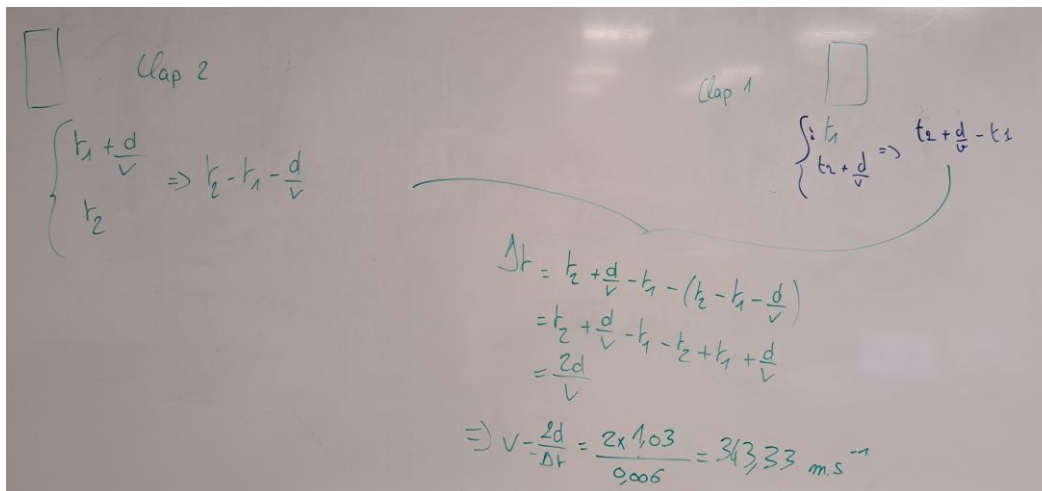 Clap 2
t₁ + d/v
t₂
=> t₂ - t₁ - d/v
Clap 1
t₁
t₂ + d/v
=> t₂ + d/v - t₁
Δt = t₂ + d/v - t₁ - (t₂ - t₁ - d/v)
= t₂ + d/v - t₁ - t₂ + t₁ + d/v
= 2d/v
=> v = 2d/Δt = 2 x 1,03/0,006 = 343,33 m.s⁻¹